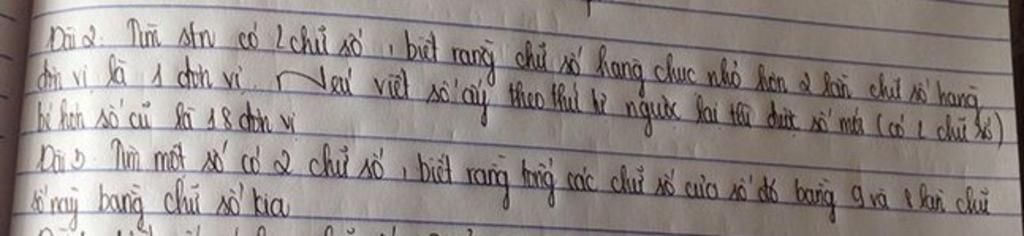 Bài 2. Tìm stn có 2 chữ số, biết rằng chữ số hàng chục nhỏ hơn 2 lần chữ số hàng
đơn vị là 1 đơn vị. Nếu viết số ấy theo thứ tự ngược lại thì được số mới (có 2 chữ số)
bé hơn số cũ là 18 đơn vị
Bài 3. Tìm một số có 2 chữ số, biết rằng tổng các chữ số của số đó bằng 9 và 2 lần chữ
số này bằng chữ số kia